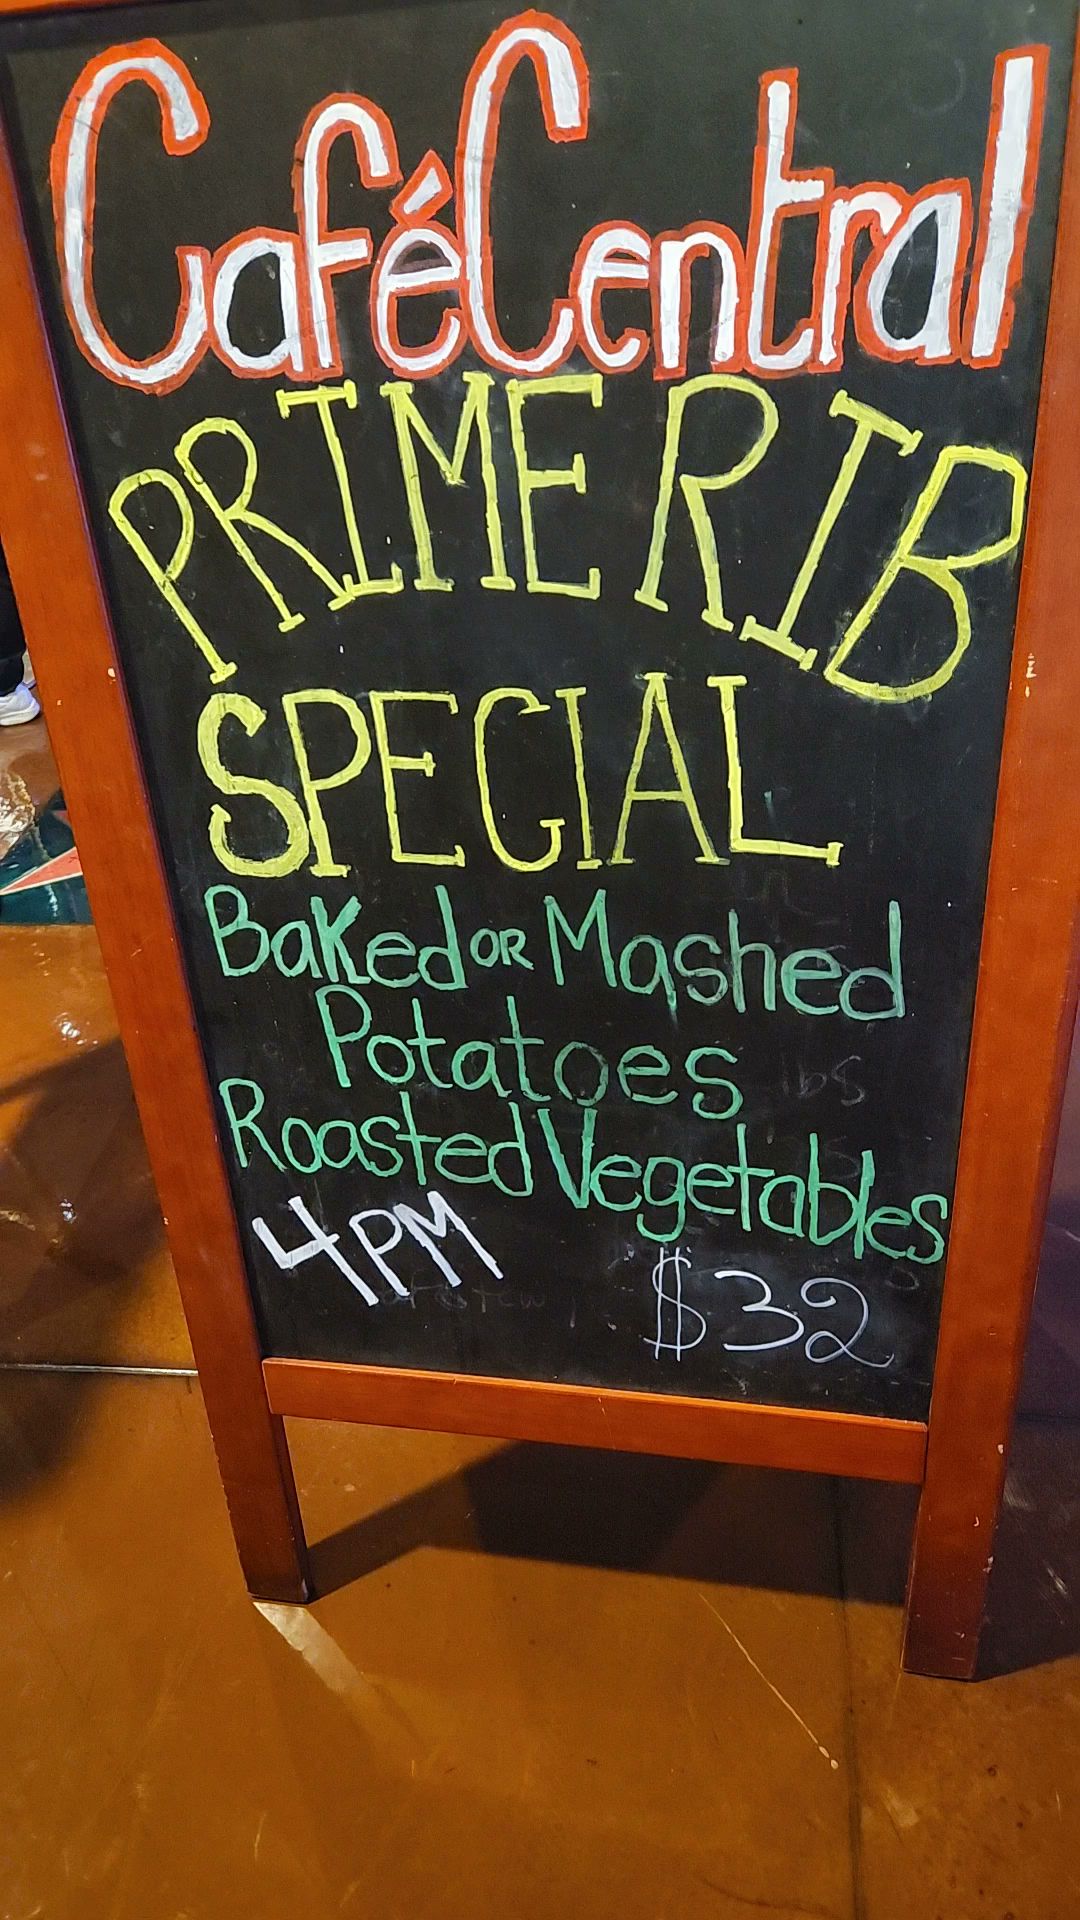 Café Central
PRIME RIB
SPECIAL
Baked OR Mashed
Potatoes
Roasted Vegetables
4PM
$32